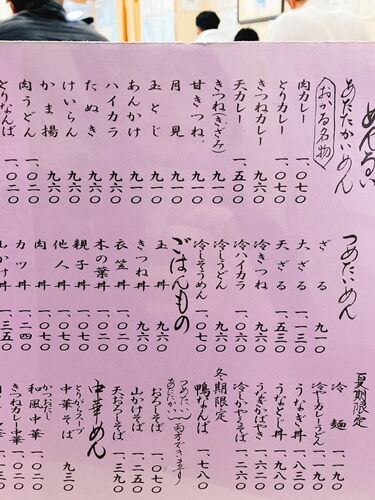 めんるい
あたたかいめん
おかる名物
肉カレー 一、〇七〇
とりカレー 一、〇七〇
きつねカレー 九六〇
天カレー 一、一五〇
きつね(きざみ) 九一〇
甘きつね 九一〇
月見 九一〇
玉とじ 九一〇
あんかけ 九一〇
ハイカラ 九六〇
たぬき 九六〇
けいらん 九六〇
かま揚 九六〇
肉うどん 一、〇二〇
とりなんば 一、〇二〇
つめたいめん
ざる 九一〇
大ざる 一、一三〇
天ざる 一、五三〇
冷きつね 九六〇
冷ハイカラ
冷しうどん
冷しそうめん 一、〇七〇
ごはんもの
玉丼 九六〇
きつね丼 九六〇
衣笠丼 一、〇二〇
木の葉丼 一、〇二〇
親子丼 一、〇七〇
他人丼 一、〇七〇
肉丼
カツ丼 一、二四〇
一、三五〇
夏期限定
冷麺 一、一九〇
冷やカレーうどん
うなぎ丼 一、八三〇
うなとじ丼 一、九八〇
うなかばやき
冷しかやくそば 一、二六〇
冬期限定
鴨なんば 一、七八〇
つめたい
あたたかい
両方できます
おろしそば 一、〇七〇
山かけそば 一、二六〇
天おろしそば 一、三九〇
中華めん
とりがらスープ
中華そば 九三〇
かつおだし
和風中華
きつねカレー中華